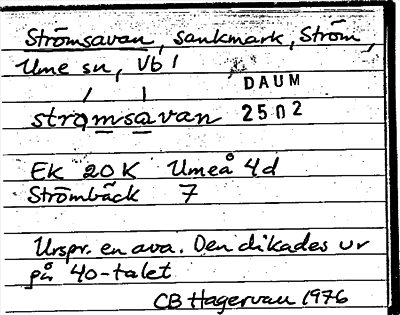 Strömsavan, sankmark, Ström,
Ume sn, Vb 1
DAUM
2502
stromsavan
Ek 20 K Umeå 4d
Strömbäck 7
Urspr. en ava. Den dikades ur
på 40-talet
CB Hagervall 1976